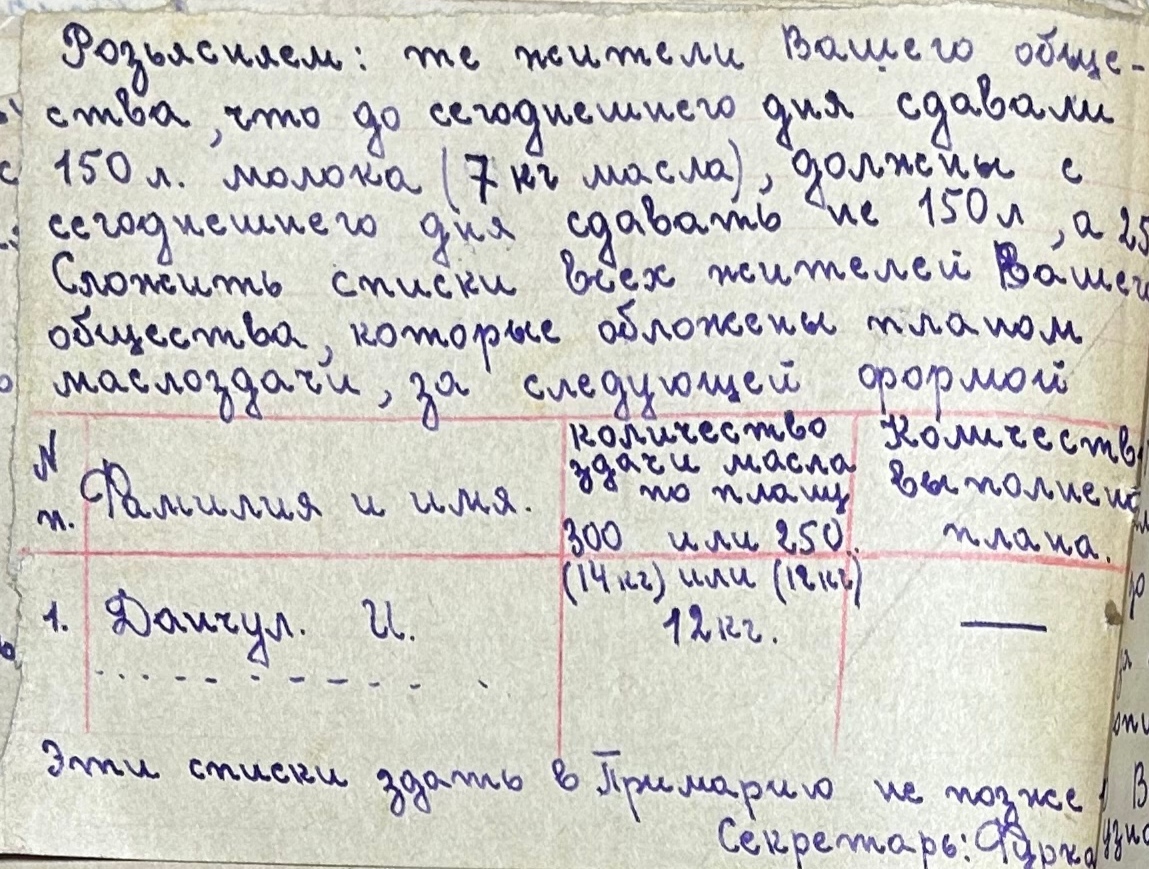 Розьясняем: те жители Вашего обще-
ства, что до сегоднешнего дня сдавали
150 л. молока (7 кг масла), должены с
сегоднешнего дня сдавать не 150 л, а 25
Сложить списки всех жителей Вашег
общества, которые обложены планом
маслоздачи, за следующей формой
N п.
Фамилия и имя.
количество
здачи масла
по плану
300 или 250.
(14 кг) или (12 кг)
Количеств
выполнен
плана.
1. Данчул. И. 12 кг. —
Эти списки здать в Примарию не позже
Секретарь: